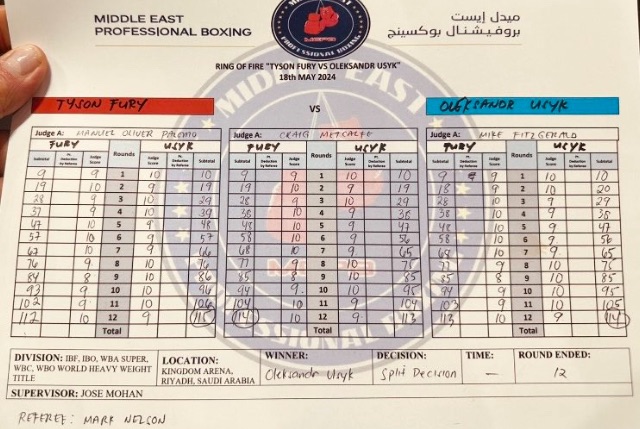 MIDDLE EAST
PROFESSIONAL BOXING
ميدل إيست
بروفيشنال بوكسينج
RING OF FIRE "TYSON FURY VS OLEKSANDR USYK"
18th MAY 2024
TYSON FURY VS OLEKSANDR USYK
Judge A: MANUEL OLIVER Judge A: CRAIG METCALFE Judge A: MIKE FITZGERALD
FURY USYK FURY USYK FURY USYK
Subtotal Pt. Deduction by Referee Judge Score Rounds Judge Score Pt. Deduction by Referee Subtotal Subtotal Pt. Deduction by Referee Judge Score Rounds Judge Score Pt. Deduction by Referee Subtotal Subtotal Pt. Deduction by Referee Judge Score Rounds Judge Score Pt. Deduction by Referee Subtotal
9 9 1 10 10 9 9 1 10 10 9 9 1 10 10
19 10 2 9 19 19 10 2 9 19 18 9 2 10 20
28 9 3 10 29 28 9 3 10 29 28 10 3 9 29
37 9 4 10 39 38 10 4 9 38 38 10 4 9 38
47 10 5 9 48 48 10 5 9 47 48 10 5 9 47
57 10 6 9 57 58 10 6 9 56 58 10 6 9 56
67 10 7 9 66 68 10 7 9 65 68 10 7 9 65
76 9 8 10 76 77 9 8 10 75 77 9 8 10 75
84 8 9 10 86 85 8 9 10 85 85 8 9 10 85
93 9 10 10 96 94 9 10 10 95 94 9 10 10 95
102 9 11 10 106 104 10 11 9 104 103 9 11 10 105
112 10 12 9 115 114 10 12 9 113 113 10 12 9 114
Total Total Total
DIVISION: IBF, IBO, WBA SUPER,
WBC, WBO WORLD HEAVY WEIGHT
TITLE
LOCATION:
KINGDOM ARENA,
RIYADH, SAUDI ARABIA
WINNER:
Oleksandr Usyk
DECISION:
Split Decision
TIME:
—
ROUND ENDED:
12
SUPERVISOR: JOSE MOHAN
REFEREE: MARK NELSON